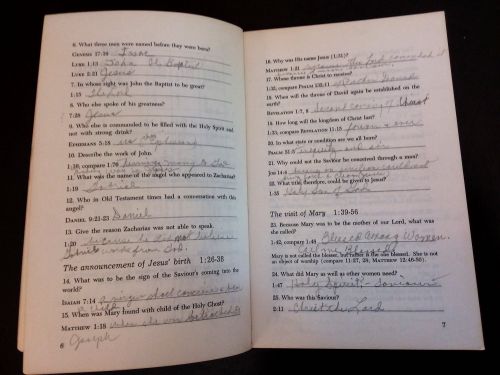 6. What three men were named before they were born?
GENESIS 17:19 Isaac
LUKE 1:13 John the Baptist
LUKE 2:21 Jesus
7. In whose sight was John the Baptist to be great?
1:15 The Lord
8. Who else spoke of his greatness?
7:28 Jesus
9. Who else is commanded to be filled with the Holy Spirit and
not with strong drink?
EPHESIANS 5:18
10. Describe the work of John.
1:16; compare 1:76 turning many to God
11. What was the name of the angel who appeared to Zacharias?
1:19 Gabriel
12. Who in Old Testament times had a conversation with this
angel?
DANIEL 9:21-23 Daniel
13. Give the reason Zacharias was not able to speak.
1:20 because he did not believe
words from God
The announcement of Jesus' birth 1:26-38
14. What was to be the sign of the Saviour's coming into the
world?
ISAIAH 7:14 a virgin shall conceive
child
15. When was Mary found with child of the Holy Ghost?
MATTHEW 1:18 when she was
Joseph
6
16. Why was His name Jesus (1:31)?
MATTHEW 1:21 because the Lord commanded it
17. Whose throne is Christ to receive?
1:32; compare PSALM 132:11
18. When will the throne of David again be established on the
earth?
REVELATION 1:7, 8 Second coming of Christ
19. How long will the kingdom of Christ last?
1:33; compare REVELATION 11:15 forever & ever
20. In what state or condition were we all born?
PSALM 51:5 iniquity and sin
21. Why could not the Saviour be conceived through a man?
JOB 14:4
22. What title, therefore, could be given to Jesus?
1:35 Holy Son of God
The visit of Mary 1:39-56
23. Because Mary was to be the mother of our Lord, what was
she called?
1:42; compare 1:48 Blessed among Women.
Blessed
Mary is not called the blesser, but rather is the one blessed. She is not
an object of worship (compare 11:27, 28; MATTHEW 12:46-50).
24. What did Mary as well as other women need?
1:47 Holy Spirit - Saviour
25. Who was this Saviour?
2:11 Christ the Lord
7